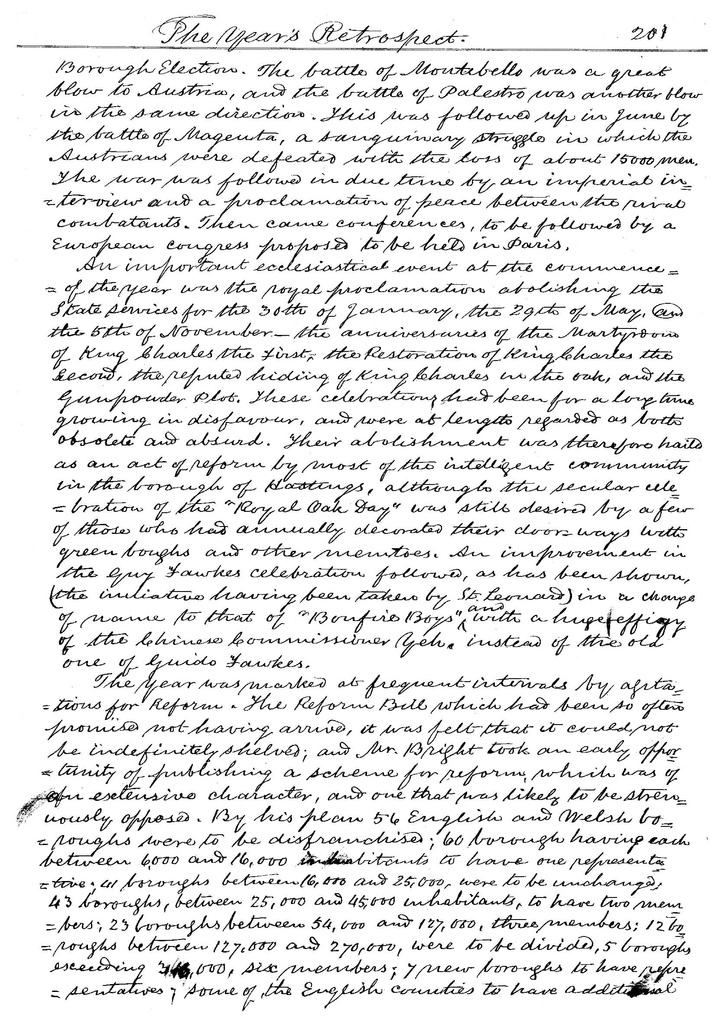 The Year's Retrospect. 201
Borough Election. The battle of Montebello was a great
blow to Austria, and the battle of Palestro was another blow
in the same direction. This was followed up in June by
the battle of Magenta, a sanguinary struggle in which the
Austrians were defeated with the loss of about 15000 men.
The war was followed in due time by an imperial in=
=terview and a proclamation of peace between the rival
combatants. Then came conferences, to be followed by a
European congress proposed to be held in Paris.
An important ecclesiastical event at the commence=
= of the year was the royal proclamation abolishing the
State services for the 30th of January, the 29th of May, and
the 5th of November — the anniversaries of the Martyrdom
of King Charles the First, the Restoration of King Charles the
Second, the reputed hiding of King Charles in the oak, and the
Gunpowder Plot. These celebrations had been for a long time
growing in disfavour, and were at length regarded as both
obsolete and absurd. Their abolishment was therefore haild
as an act of reform by most of the intelligent community
in the borough of Hastings, although the secular cele=
=bration of the "Royal Oak Day" was still desired by a few
of those who had annually decorated their door-ways with
green boughs and other mementoes. An improvement in
the Guy Fawkes celebration followed, as has been shown,
(the initiative having been taken by St. Leonard) in a change
of name to that of "Bonfire Boys", and with a huge effigy
of the Chinese Commissioner Yeh, instead of the old
one of Guido Fawkes.
The Year was marked at frequent intervals by agita=
=tions for Reform. The Reform Bill which had been so often
promised not having arrived, it was felt that it could not
be indefinitely shelved; and Mr. Bright took an early oppor=
=tunity of publishing a scheme for reform, which was of
an extensive character, and one that was likely to be stren=
uously opposed. By his plan 56 English and Welsh bo=
=roughs were to be disfranchised; 60 borough having each
between 6,000 and 16,000 inhabitants to have one representa
=tive; 41 boroughs between 16,000 and 25,000, were to be unchanged,
43 boroughs, between 25,000 and 45,000 inhabitants, to have two mem
=bers; 23 boroughs between 54,000 and 127,000, three members; 12 bo=
=roughs between 127,000 and 270,000, were to be divided, 5 boroughs
exceeding ,000, six members; 7 new boroughs to have repre
=sentatives; some of the English counties to have additional